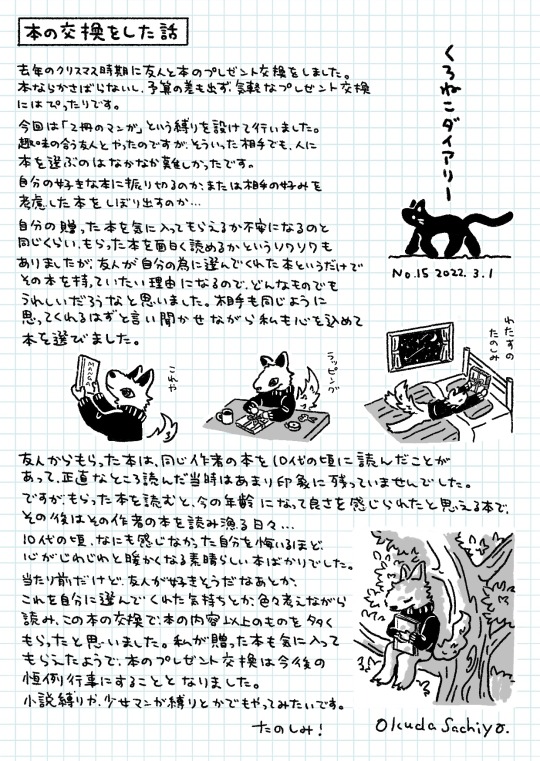 本の交換をした話
くろねこダイアリー
No.15 2022.3.1
去年のクリスマス時期に友人と本のプレゼント交換をしました。
本ならかさばらないし、予算の差も出ず、気軽なプレゼント交換
にはぴったりです。
今回は「2冊のマンガ」という縛りを設けて行いました。
趣味の合う友人とやったのですが、そういった相手でも、人に
本を選ぶのはなかなか難しかったです。
自分の好きな本に振り切るのか、または相手の好みを
考慮した本をしぼり出すのか…
自分の贈った本を気に入ってもらえるか不安になるのと
同じくらい、もらった本を面白く読めるかというソワソワも
ありましたが、友人が自分の為に選んでくれた本というだけで
その本を持っていたい理由になるので、どんなものでも
うれしいだろうなと思いました。相手も同じように
思ってくれるはずと言い聞かせながら私も心を込めて
本を選びました。
MANGA
これや
ラッピング
わたすの
たのしみ
友人からもらった本は、同じ作者の本を10代の頃に読んだことが
あって、正直なところ読んだ当時はあまり印象に残っていませんでした。
ですが、もらった本を読むと、今の年齢になって良さを感じられたと思える本で、
その後はその作者の本を読み漁る日々…
10代の頃、なにも感じなかった自分を悔いるほど、
心がじわじわと暖かくなる素晴らしい本ばかりでした。
当たり前だけど、友人が好きそうだなあとか、
これを自分に選んでくれた気持ちとか、色々考えながら
読み、この本の交換で、本の内容以上のものを多く
もらったと思いました。私が贈った本も気に入って
もらえたようで、本のプレゼント交換は今後の
恒例行事にすることとなりました。
小説縛りや、少女マンガ縛りとかでもやってみたいです。
たのしみ!
Okuda Sachiyo.